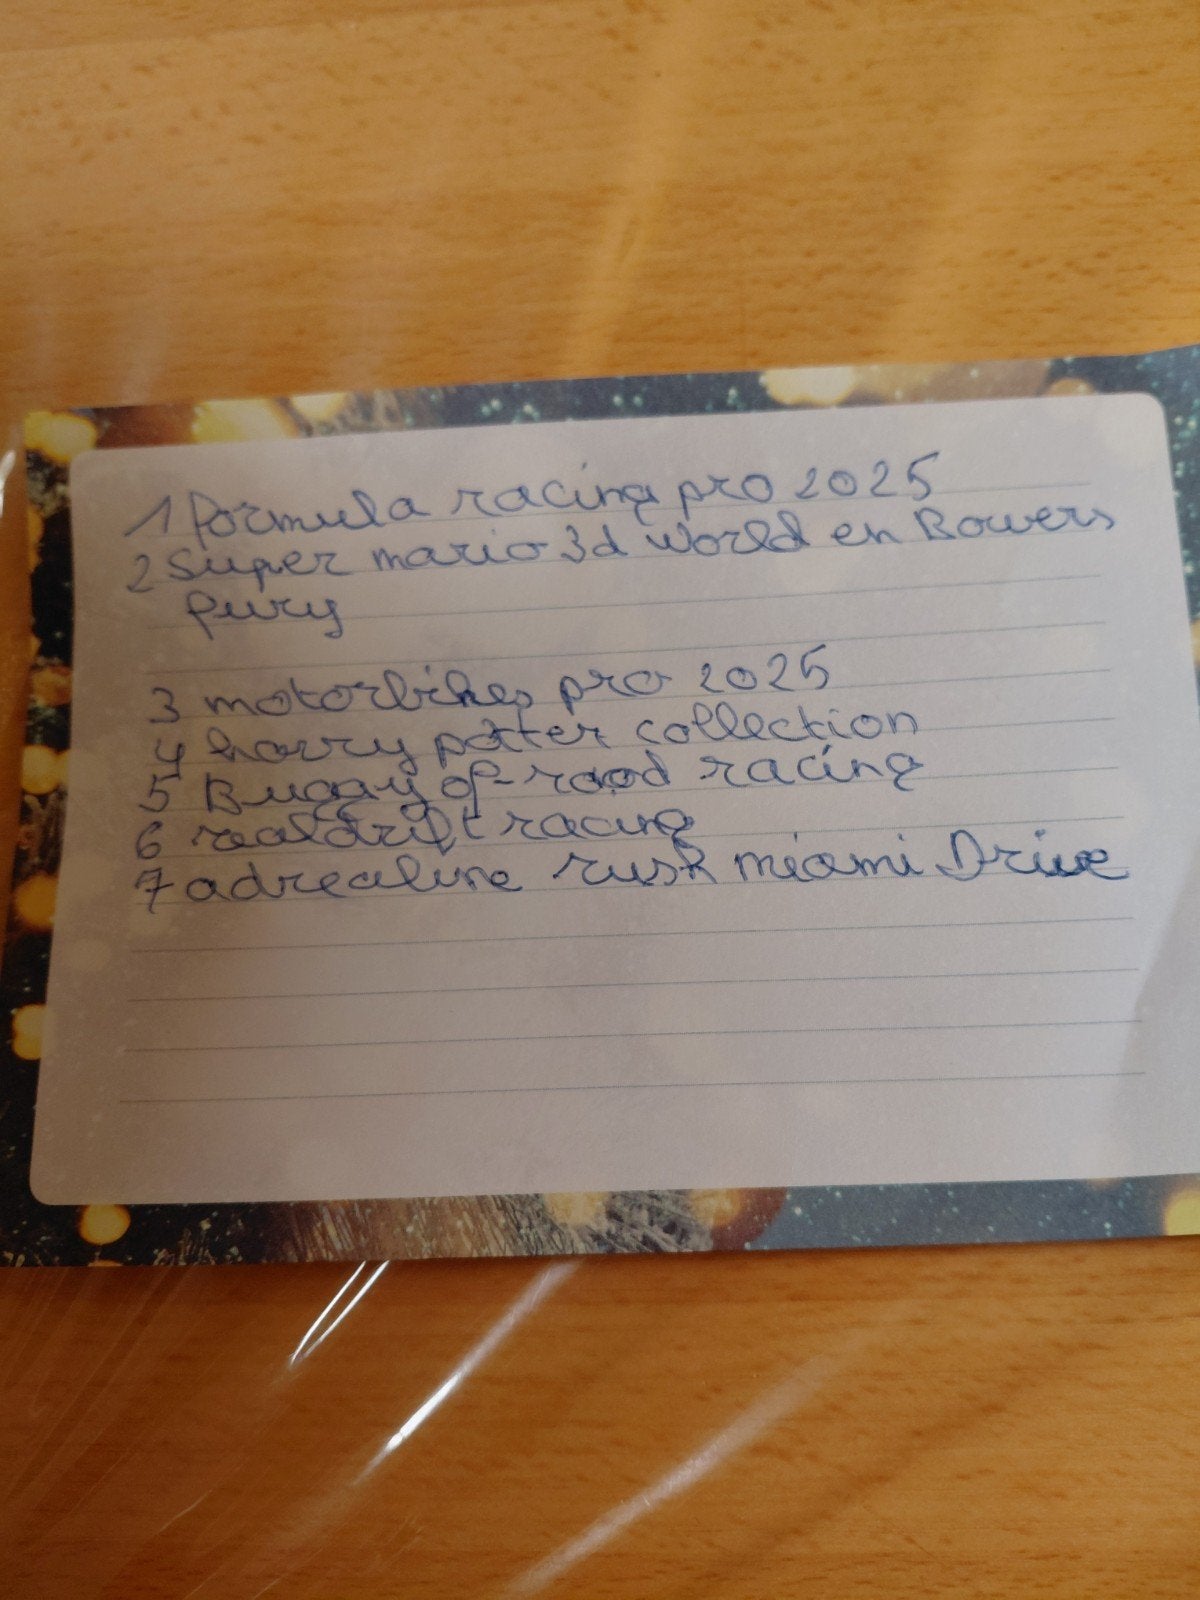 1 formula racing pro 2025
2 Super mario 3d world en Bowers
fury
3 motorbikes pro 2025
4 harry potter collection
5 Buggy of-road racing
6 realdrift racing
7 adrealine rush miami Drive